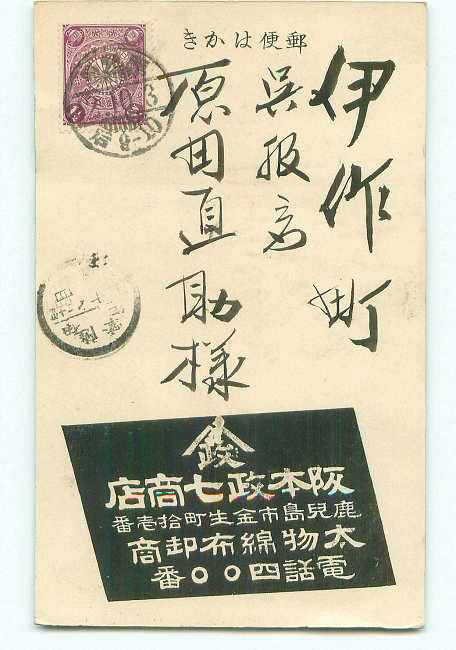 郵便はかき
伊作町
呉服商
原田直助様
政
阪本政七商店
鹿兒島市金生町拾壱番
太物綿布卸商
電話四〇〇番